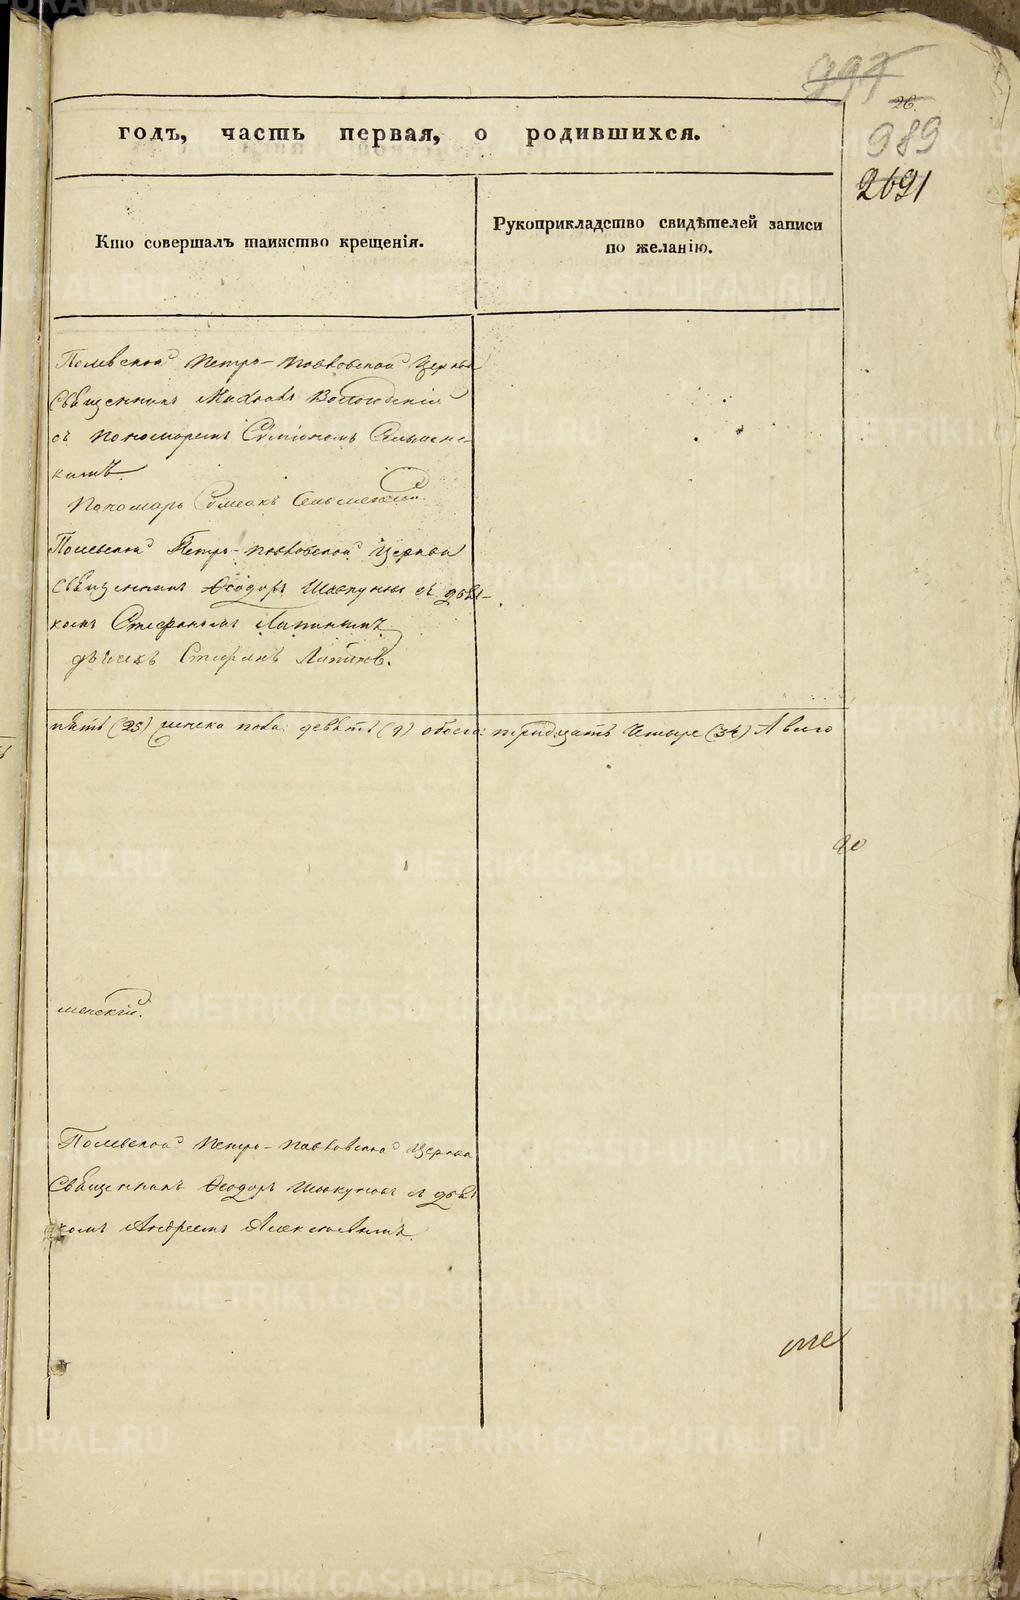 997
26.
989
2691
годъ, часть первая, о родившихся.
Кто совершалъ таинство крещенія.
Рукоприкладство свидѣтелей записи
по желанію.
Полевской Петро-Павловской Церкви
Священникъ Михаилъ
съ пономаремъ Симеономъ Сельменс-
кимъ.
Пономарь Симеонъ Сельменскій.
Полевской Петро-Павловской Церкви
Священникъ Ѳеодоръ Шавкуновъ съ дья-
комъ Стефаномъ Лапинымъ
дьячекъ Стефанъ Лапинъ.
пять (25) женска пола девять (9) обоего тридцать четыре (34)
менскій.
Полевской Петро-Павловской Церкви
Священникъ Ѳеодоръ Шавкуновъ съ дья
комъ Андреемъ
METRIKI.GASO-URAL.RU